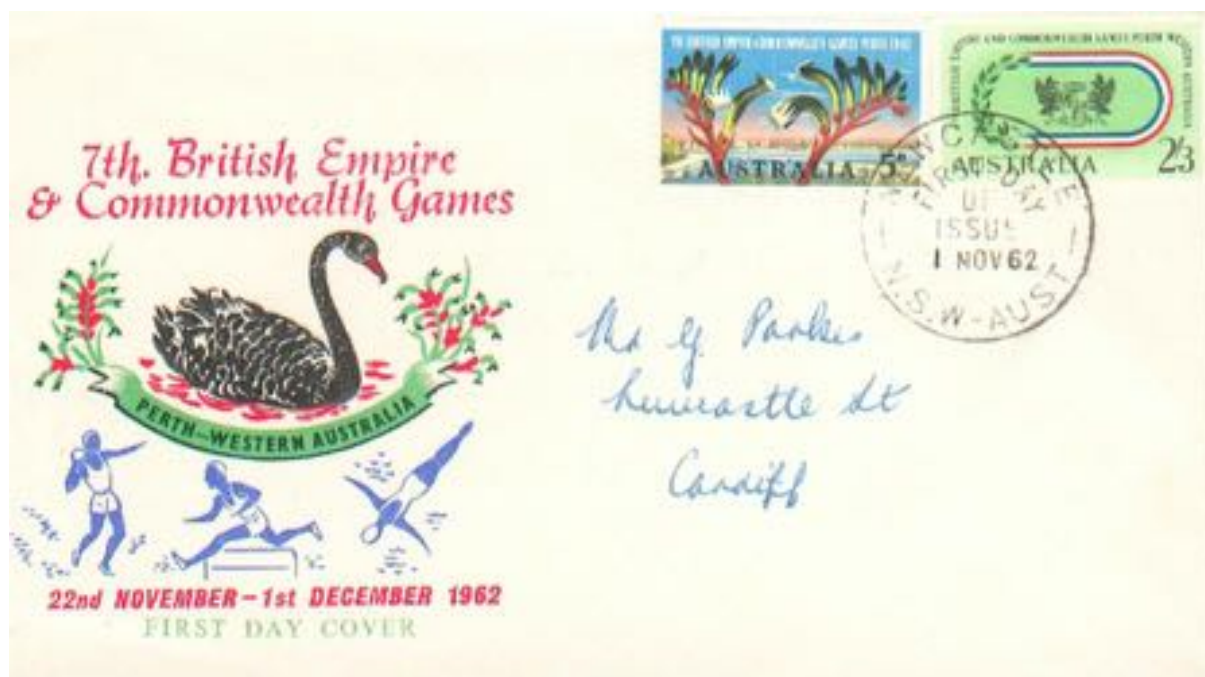 7th. British Empire
& Commonwealth Games
PERTH-WESTERN AUSTRALIA
22nd NOVEMBER-1st DECEMBER 1962
FIRST DAY COVER
7TH BRITISH EMPIRE & COMMONWEALTH GAMES PERTH 1962
AUSTRALIA 5D
BRITISH EMPIRE AND COMMONWEALTH GAMES PERTH WESTERN AUSTRALIA
AUSTRALIA 2/3
NEWCASTLE
FIRST DAY
OF
ISSUE
1 NOV 62
N.S.W-AUST
Parkes
Newcastle St
Cardiff